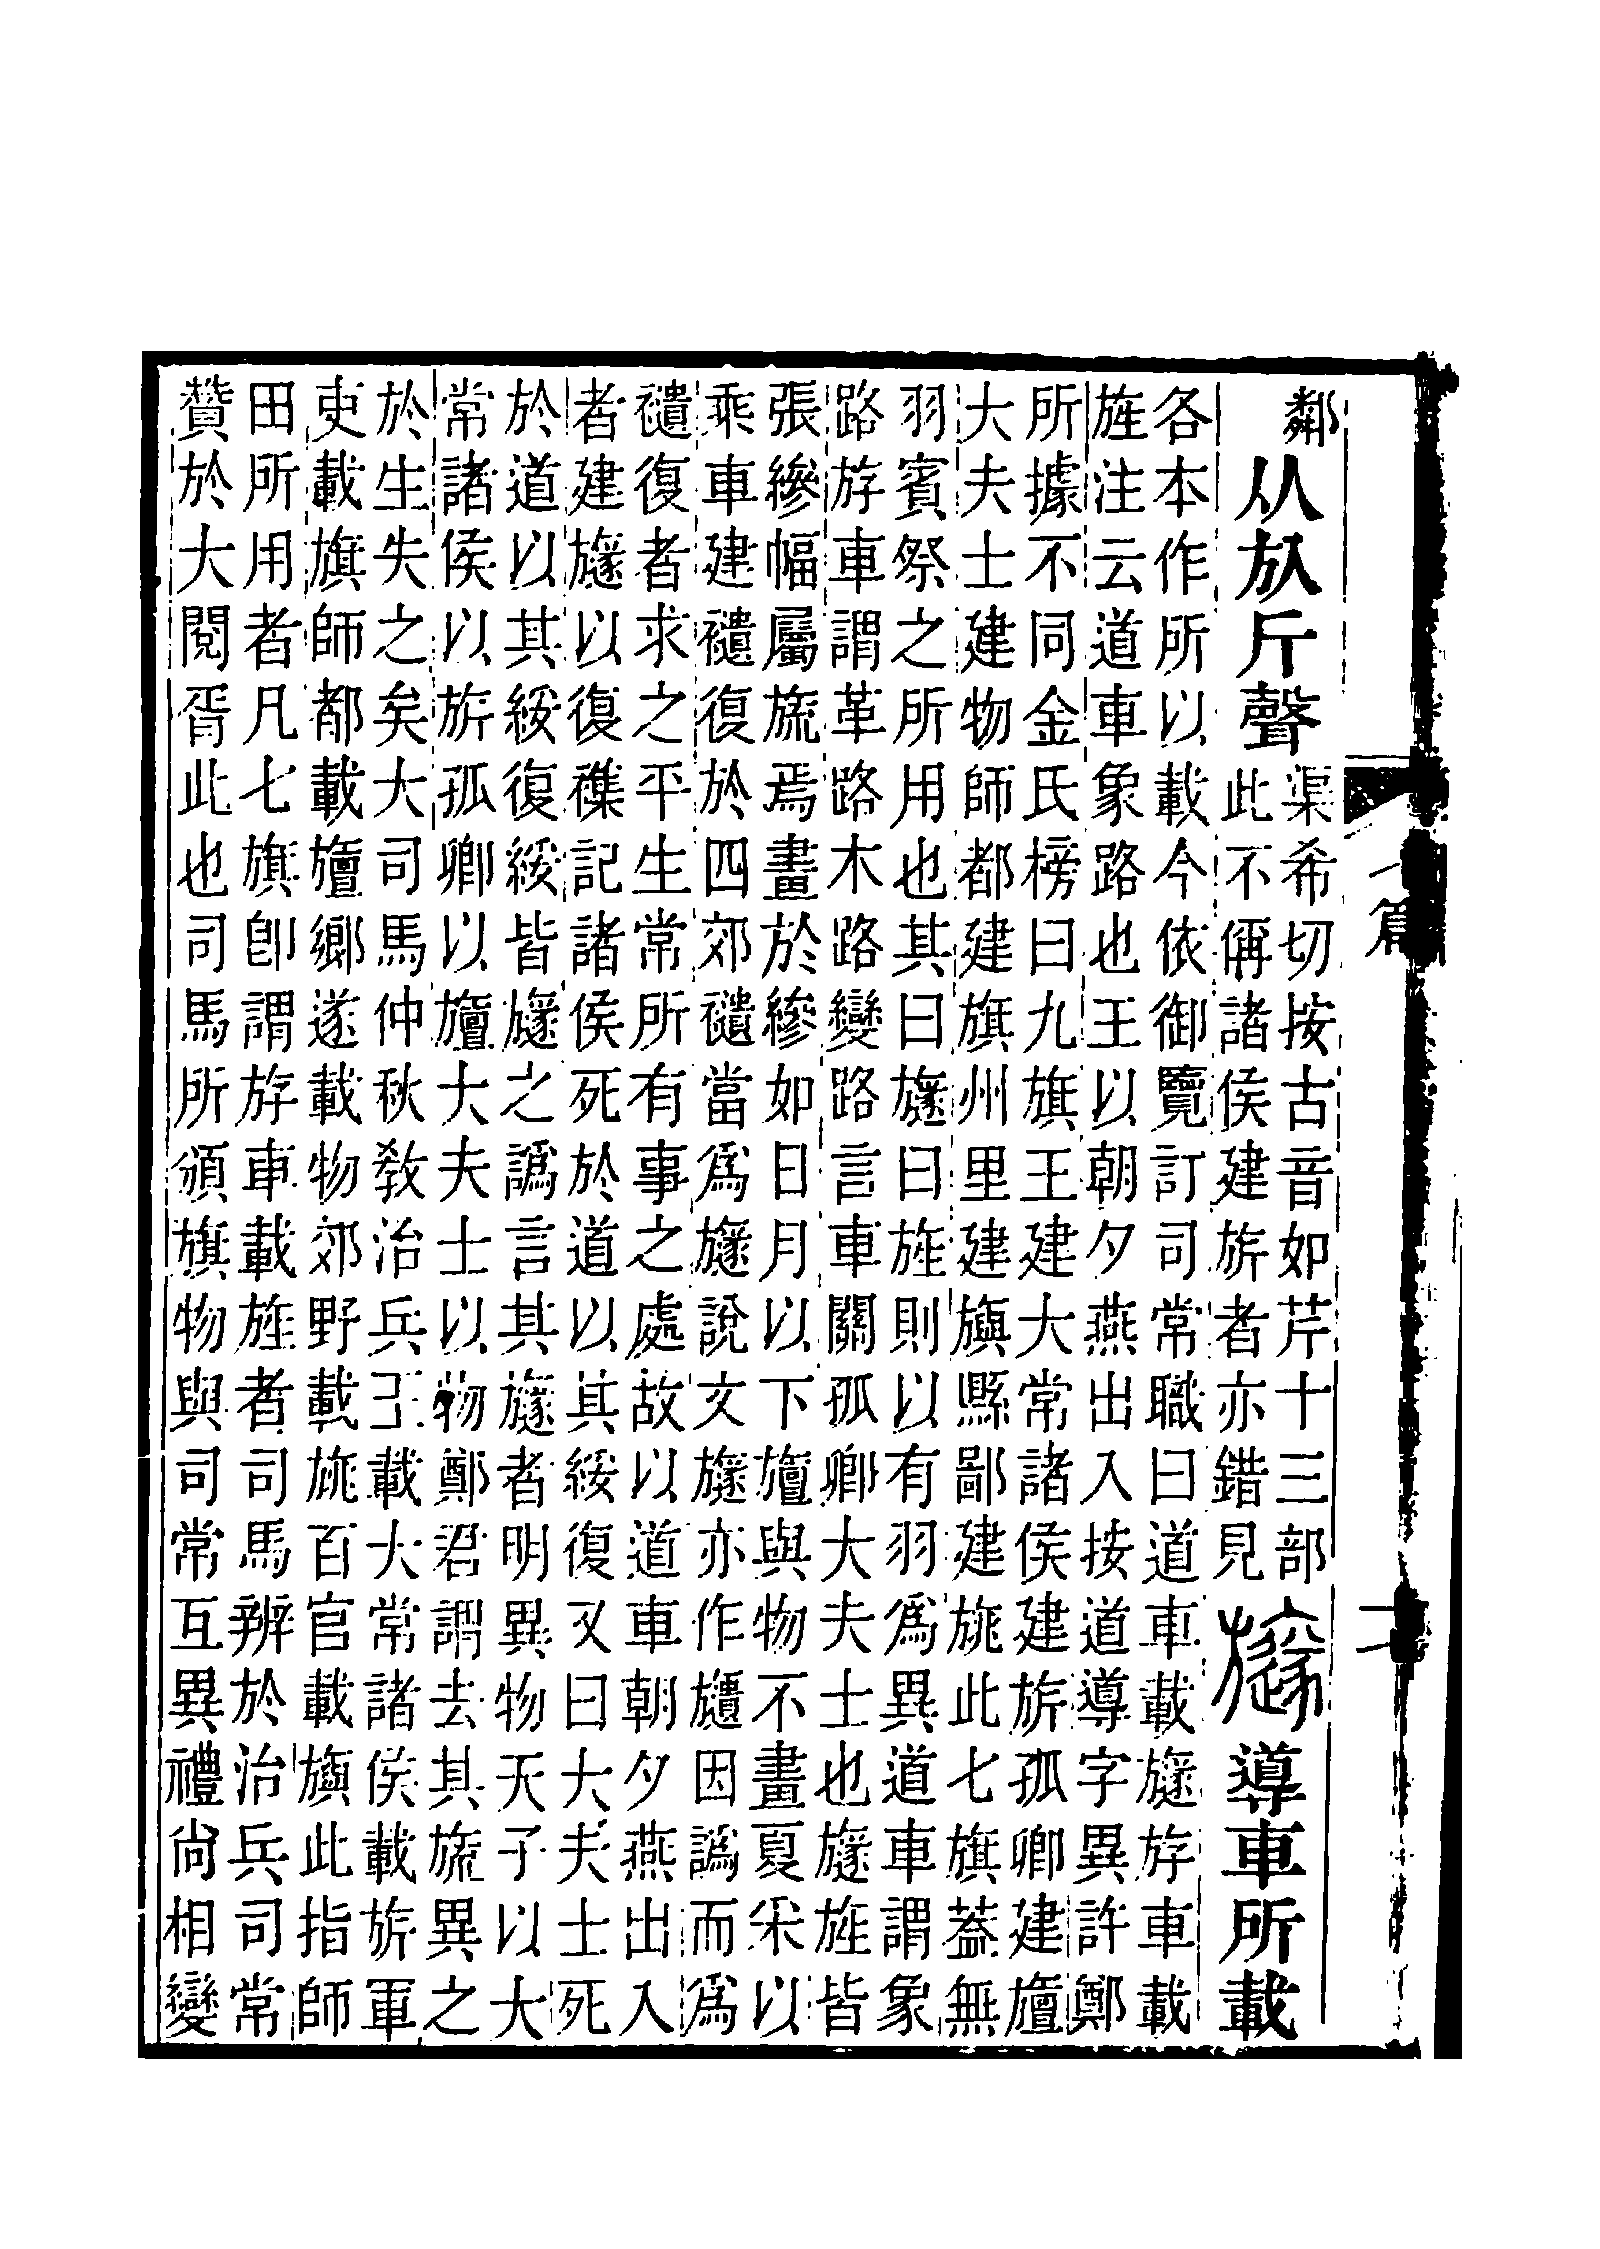 鄰从㫃斤聲渠希切按古音如芹十三部
此不偁諸侯建旂者亦錯見旞導車所載
各本作所以載今依御覽訂司常職曰道車載旞斿車載
旌注云道車象路也王以朝夕燕出入按道導字異許鄭
所據不同金氏榜曰九旗王建大常諸侯建旂孤卿建旜
大夫士建物師都建旗州里建旟縣鄙建旐此七旗葢無
羽賓祭之所用也其曰旞曰旌則以有羽爲異道車謂象
路斿車謂革路木路變路言車關孤卿大夫士也旞旌皆
張縿幅屬旒焉畫於縿如日月以下旜與物不畫夏采以
乘車建䙡復於四郊䙡當爲旞說文旞亦作𣄚因譌而爲
䙡復者求之平生常所有事之處故以道車朝夕燕出入
者建旞以復襍記諸侯死於道以其綏復又曰大夫士死
於道以其綏復綏皆旞之譌言其旞者明異物天子以大
常諸侯以旂孤卿以旜大夫士以物鄭君謂去其旒異之
於生失之矣大司馬仲秋教治兵王載大常諸侯載旂軍
吏載旗師都載旜鄉遂載物郊野載旐百官載旟此指師
田所用者凡七旗卽謂斿車載旌者司馬辨於治兵司常
贊於大閱胥此也司馬所頒旗物與司常互異禮尙相變